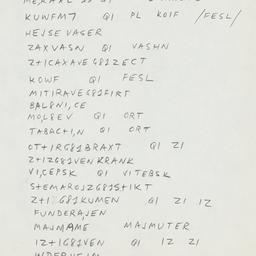 KUWFMT QI PL KOIF /FESL/
HEJSE VASER
ZAXVASN QI VASHN
Z+ICAXAVE G81ZECT
KOWF QI FESL
MITIRAVEG81FIRT
BAL8NI,CE
MOL8EV QI ORT
TABACTI,N QI ORT
OT+IRG81BRAXT QI ZI
Z+IZG81VEN KRANK
VI,CEPSK QI VITEBSK
STEMAROJZG81STIKT
Z+I G81KUMEN QI ZI IZ
FUNDERAJEN
MAJMAME MAJMUTER
IZ+IG81VEN QI IZ ZI